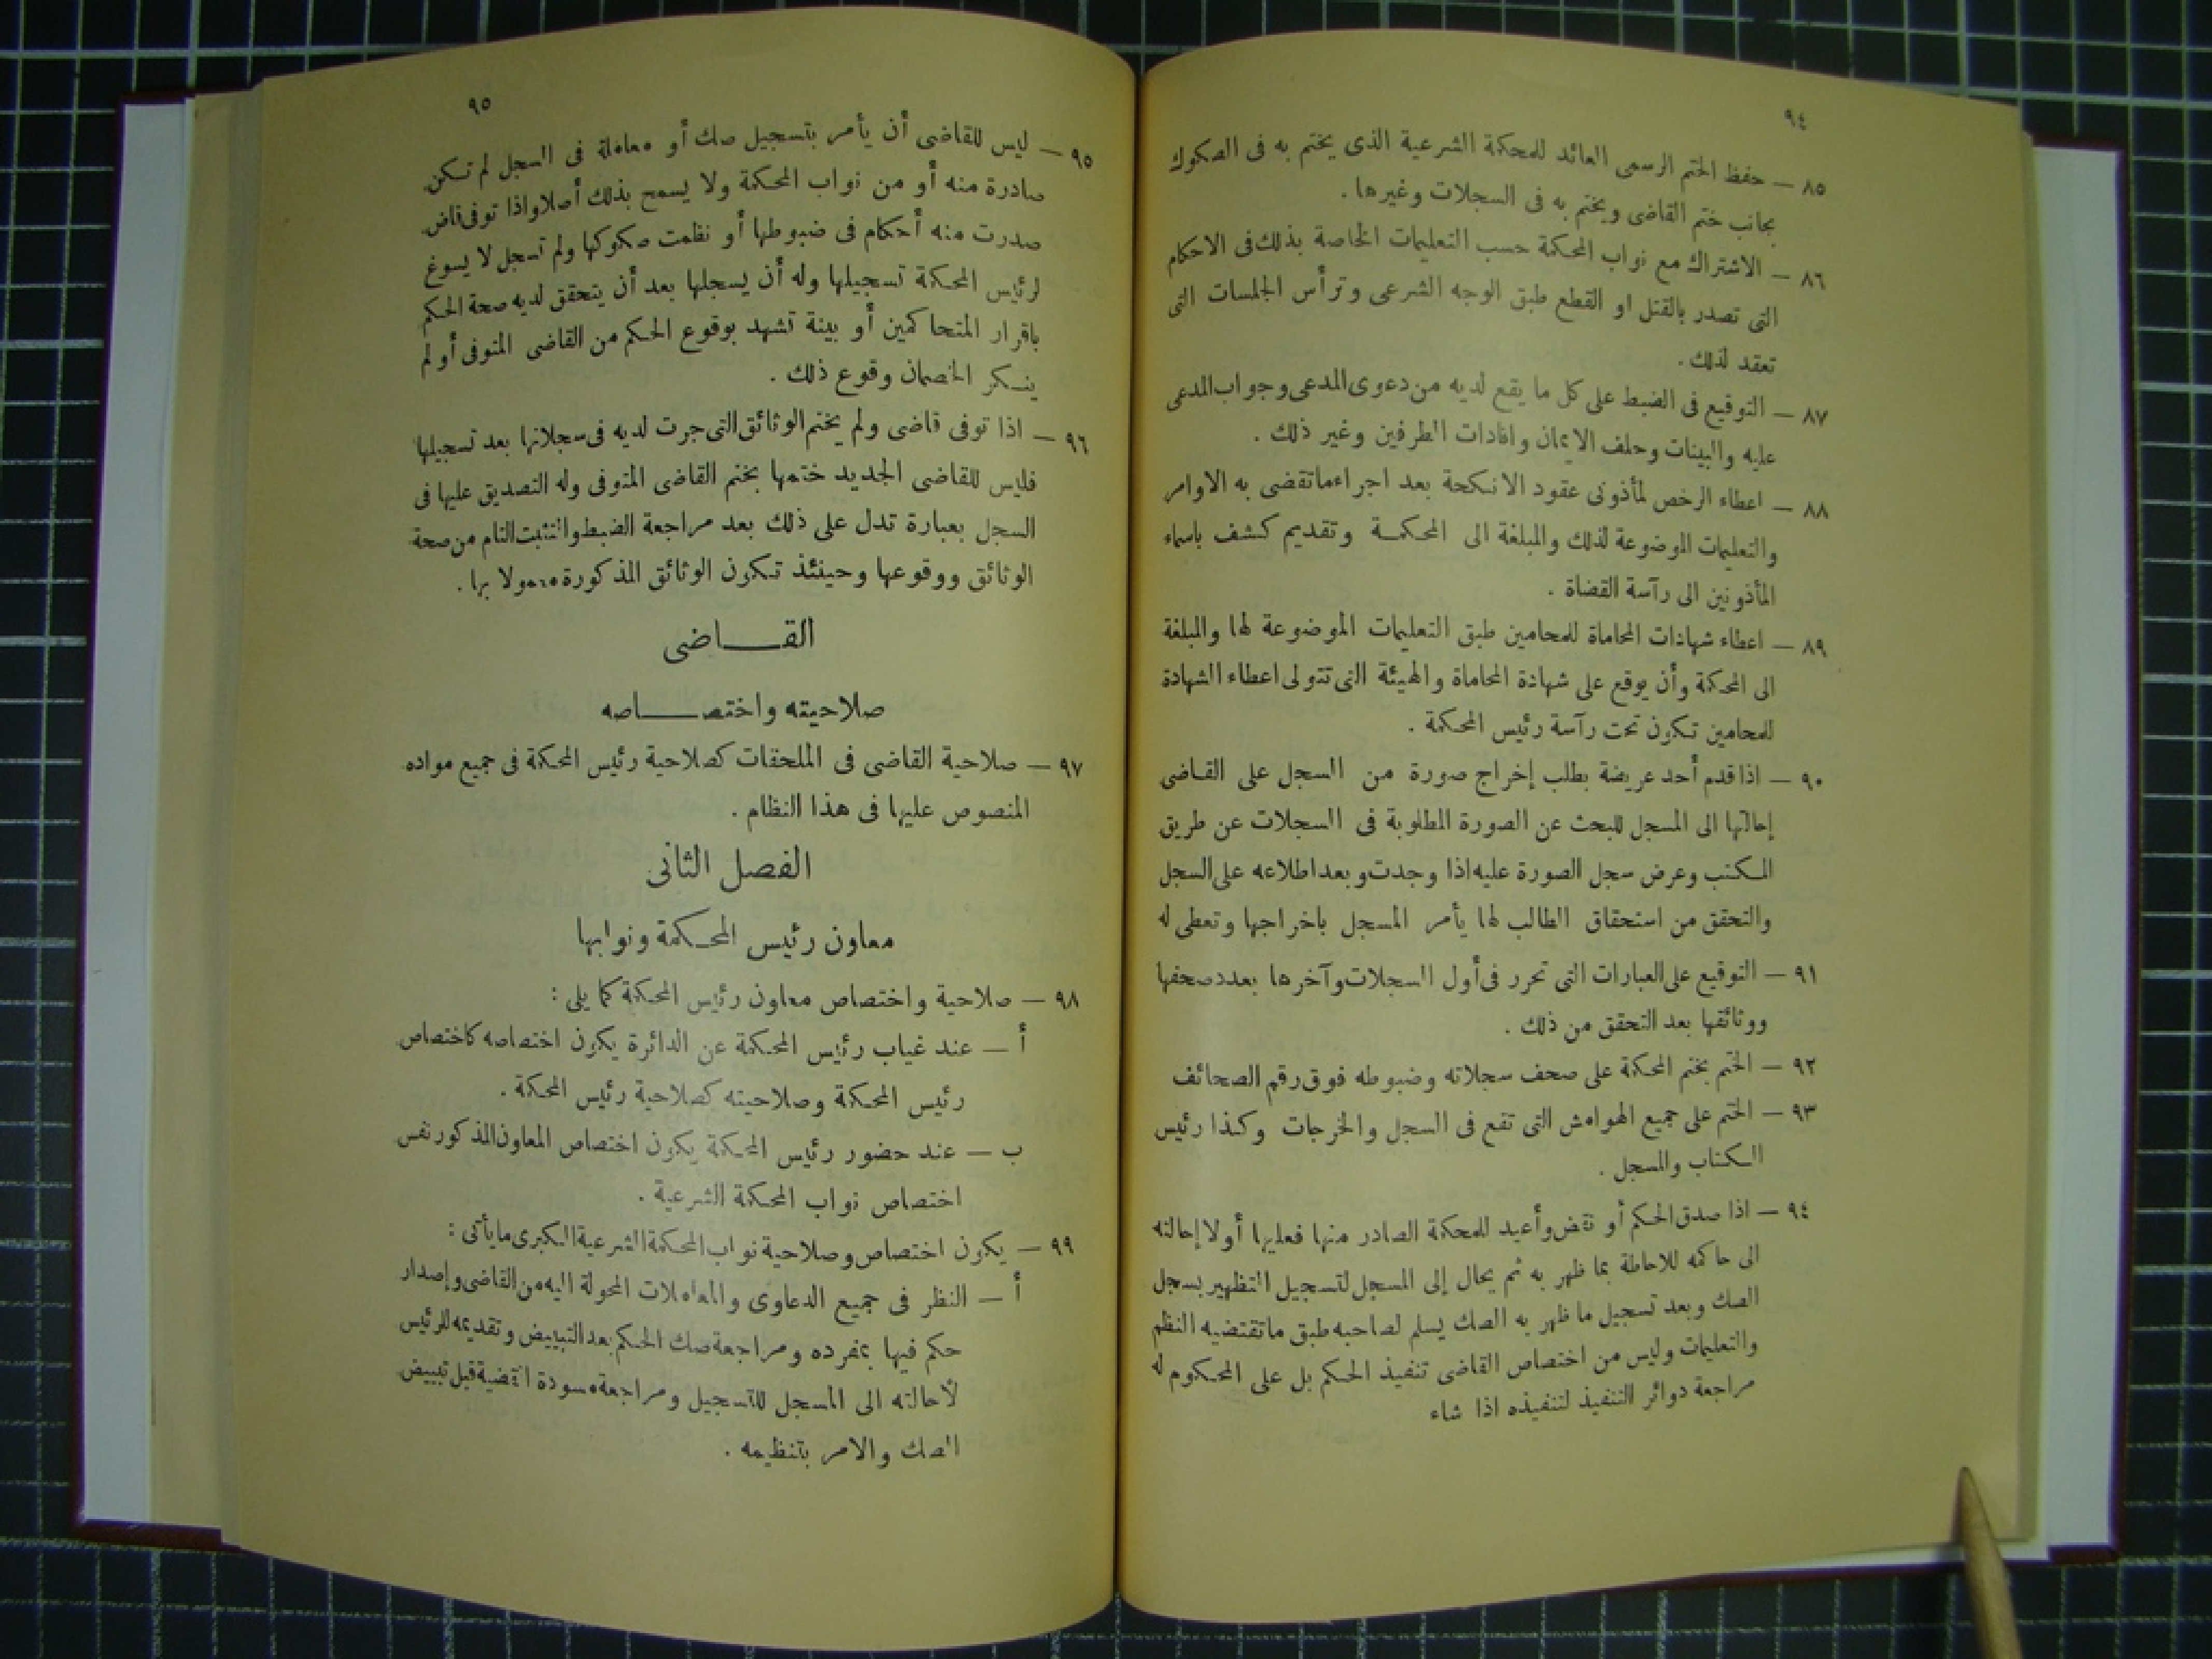 ٩٤
٨٥ — حفظ الختم الرسمى العائد للمحكمة الشرعية الذى يختم به فى الصكوك
بجانب ختم القاضى ويختم به فى السجلات وغيرها .
٨٦ — الاشتراك مع نواب المحكمة حسب التعليمات الخاصة بذلك فى الاحكام
التى تصدر بالقتل او القطع طبق الوجه الشرعى وترأس الجلسات التى
تعقد لذلك .
٨٧ — التوقيع فى الضبط على كل ما يقع لديه من دعوى المدعى وجواب المدعى
عليه والبينات وحلف الايمان وافادات الطرفين وغير ذلك .
٨٨ — اعطاء الرخص لمأذونى عقود الانكحة بعد اجراء ماتقضى به الاوامر
والتعليمات الموضوعة لذلك والمبلغة الى المحكمة وتقديم كشف باسماء
المأذونين الى رآسة القضاة .
٨٩ — اعطاء شهادات المحاماة للمحامين طبق التعليمات الموضوعة لها والمبلغة
الى المحكمة وأن يوقع على شهادة المحاماة والهيئة التى تتولى اعطاء الشهادة
للمحامين تكون تحت رآسة رئيس المحكمة .
٩٠ — اذا قدم أحد عريضة بطلب إخراج صورة من السجل على القاضى
إحالتها الى المسجل للبحث عن الصورة المطلوبة فى السجلات عن طريق
المكتب وعرض سجل الصورة عليه اذا وجدت وبعد اطلاعه على السجل
والتحقق من استحقاق الطالب لها يأمر المسجل باخراجها وتعطى له
٩١ — التوقيع على العبارات التى تحرر فى أول السجلات وآخرها بعدد صحفها
ووثائقها بعد التحقق من ذلك .
٩٢ — الختم بختم المحكمة على صحف سجلاته وضبوطه فوق رقم الصحائف
٩٣ — الختم على جميع الهوامش التى تقع فى السجل والخرجات وكذا رئيس
الكتاب والمسجل .
٩٤ — اذا صدق الحكم أو نقض وأعيد للمحكمة الصادر منها فعليها أولا إحالته
الى حاكمه للاحاطة بما ظهر به ثم يحال إلى المسجل لتسجيل التظهير بسجل
الصك وبعد تسجيل ما ظهر به الصك يسلم لصاحبه طبق ماتقتضيه النظم
والتعليمات وليس من اختصاص القاضى تنفيذ الحكم بل على المحكوم له
مراجعة دوائر التنفيذ لتنفيذه اذا شاء
٩٥
٩٥ — ليس للقاضى أن يأمر بتسجيل صك أو معاملة فى السجل لم تكن
صادرة منه أو من نواب المحكمة ولا يسمح بذلك أصلا واذا توفى قاض
صدرت منه أحكام فى ضبوطها أو نظمت صكوكها ولم تسجل لا يسوغ
لرئيس المحكمة تسجيلها وله أن يسجلها بعد أن يتحقق لديه صحة الحكم
باقرار المتحاكمين أو بينة تشهد بوقوع الحكم من القاضى المتوفى أو لم
ينكر الخصمان وقوع ذلك .
٩٦ — اذا توفى قاضى ولم يختم الوثائق التى جرت لديه فى سجلاتها بعد تسجيلها
فليس للقاضى الجديد ختمها بختم القاضى المتوفى وله التصديق عليها فى
السجل بعبارة تدل على ذلك بعد مراجعة الضبط والتثبت التام من صحة
الوثائق ووقوعها وحينئذ تكون الوثائق المذكورة معمولا بها .
القــاضى
صلاحيته واختصــاصه
٩٧ — صلاحية القاضى فى الملحقات كصلاحية رئيس المحكمة فى جميع مواده
المنصوص عليها فى هذا النظام .
الفصل الثانى
معاون رئيس المحكمة ونوابها
٩٨ — صلاحية واختصاص معاون رئيس المحكمة كما يلى :
أ — عند غياب رئيس المحكمة عن الدائرة يكون اختصاصه كاختصاص
رئيس المحكمة وصلاحيته كصلاحية رئيس المحكمة .
ب — عند حضور رئيس المحكمة يكون اختصاص المعاون المذكور نفس
اختصاص نواب المحكمة الشرعية .
٩٩ — يكون اختصاص وصلاحية نواب المحكمة الشرعية الكبرى مايأتى :
أ — النظر فى جميع الدعاوى والمعاملات المحولة اليه من القاضى وإصدار
حكم فيها بمفرده ومراجعة صك الحكم بعد التبييض وتقديمه للرئيس
لأحالته الى المسجل للتسجيل ومراجعة مسودة القضية قبل تبييض
الصك والامر بتنظيمه .